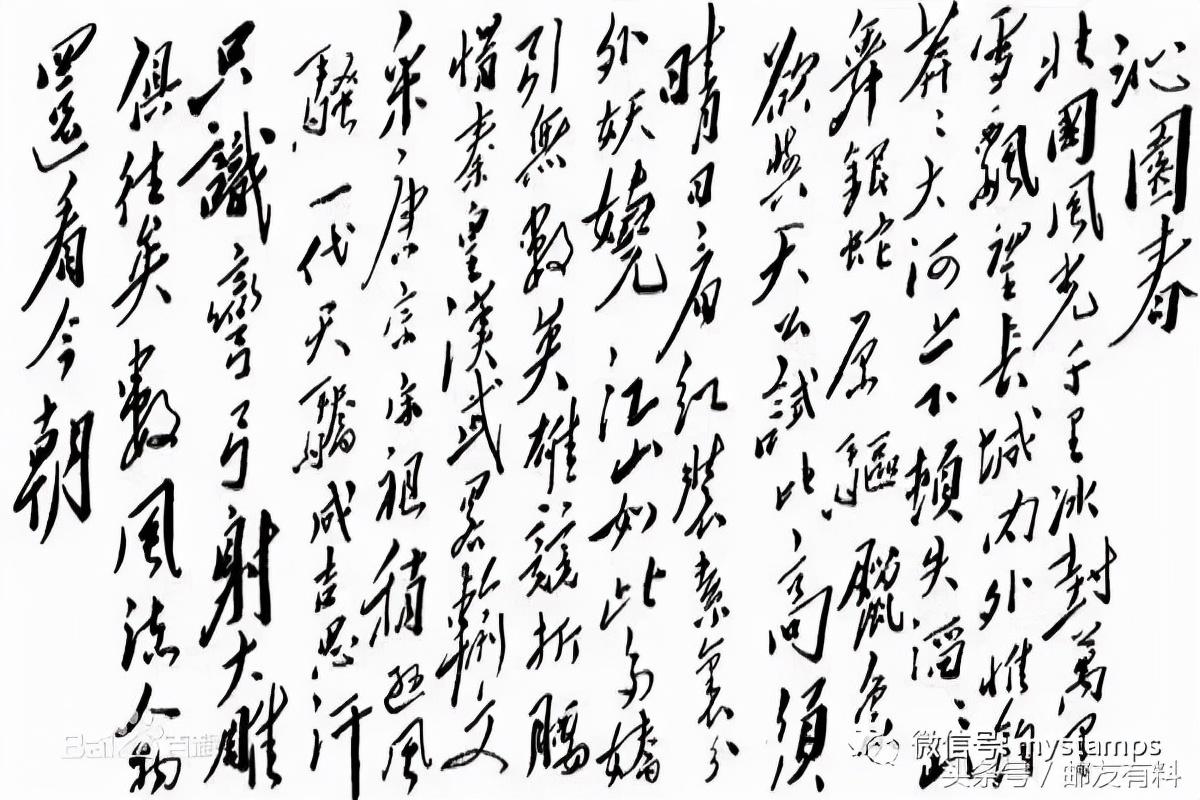 沁園春
北國風光千里冰封萬里
雪飄望長城内外惟餘
莽々大河上下頓失滔々山
舞銀蛇原驅臘象
欲與天公試比高須
晴日看紅裝素裹分
外妖嬈江山如此多嬌
引無數英雄競折腰
惜秦皇漢武略輸文
采唐宗宋祖稍遜風
騷一代天驕成吉思汗
只識彎弓射大雕
俱往矣數風流人物
還看今朝
微信号: mystamps
头条号 / 邮友有料